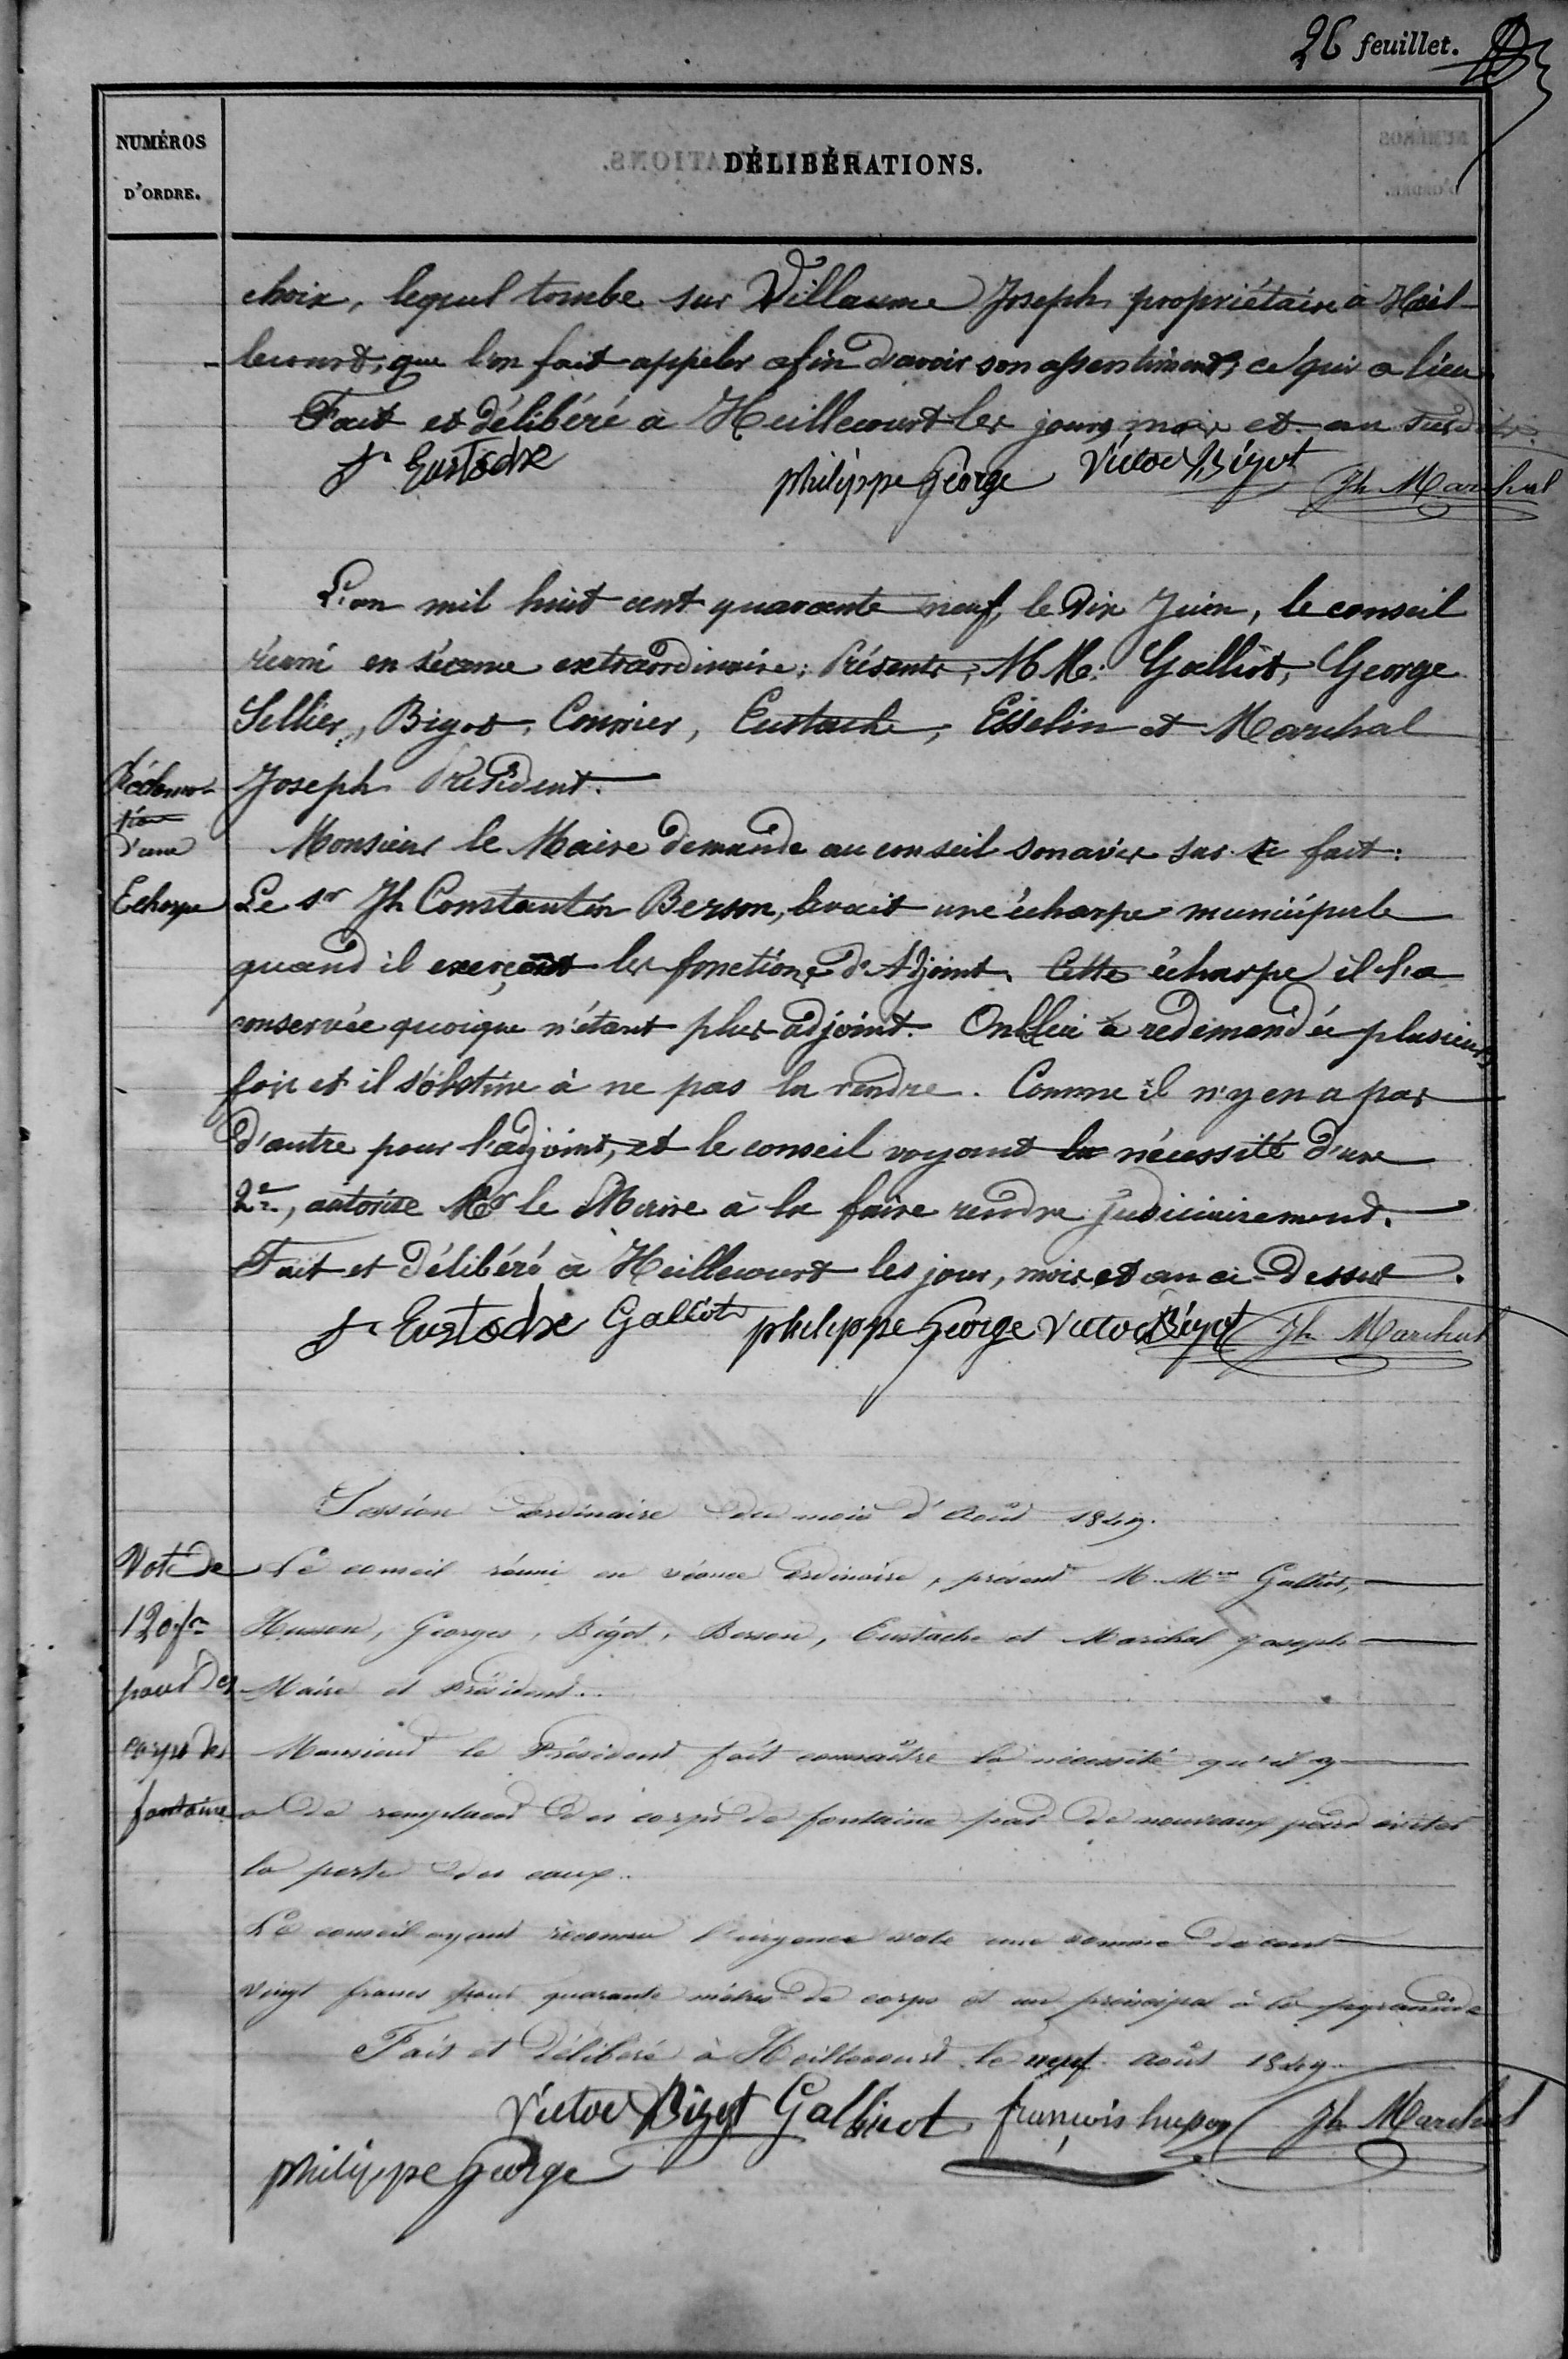 26 feuillet.
NUMÉROS
D'ORDRE.
DÉLIBÉRATIONS.
choix, lequel tombe sur Villaume Joseph propriétaire à Heil-
lecourt, que l'on fait appeler afin d'avoir son assentiment; ce qui a lieu.
Fait et délibéré à Heillecourt les jours, mois et an susdits.
Jh Eustache
philippe George
Victor Bigot
Jh Marchal
L'an mil huit cent quarante neuf, le dix Juin, le conseil
réuni en séance extraordinaire: Présents, MM. Galliot, George
Sellier, Bigot, Courrier, Eustache, Esselin et Marchal
Joseph Président.
Réclama-
tion
d'une
Echarpe
Monsieur le Maire demande au conseil son avis sur ce fait:
Le sr Jh Constantin Berson, avait une écharpe municipale
quand il exerçait les fonctions d'Adjoint. Cette écharpe il l'a
conservée quoique n'étant plus adjoint. On la lui a redemandée plusieurs
fois et il s'obstine à ne pas la rendre. Comme il n'y en a pas
d'autre pour l'adjoint, et le conseil voyant la nécessité d'une
2e, autorise Mr le Maire à la faire rendre judiciairement.
Fait et délibéré à Heillecourt les jour, mois et an ci-dessus.
Jh Eustache Galliot philippe George Victor Bigot Jh Marchal
Session ordinaire du mois d'Août 1849.
Vote de
120 fr
pour des
corps de
fontaine
Le conseil réuni en séance ordinaire, présent M.Mrs Galliot,
Husson, Georges, Bigot, Berson, Eustache et Marchal Joseph
Maire et Président..
Monsieur le Président fait connaître la nécessité qu'il y
a de remplacer des corps de fontaine par de nouveaux pour éviter
la perte des eaux..
Le conseil ayant reconnu l'urgence vote une somme de cent
vingt francs pour quarante mètres de corps et un principal à la pyramide
Fait et délibéré à Heillecourt le neuf août 1849.
Victor Bigot Galliot françois husson Jh Marchal
philippe George